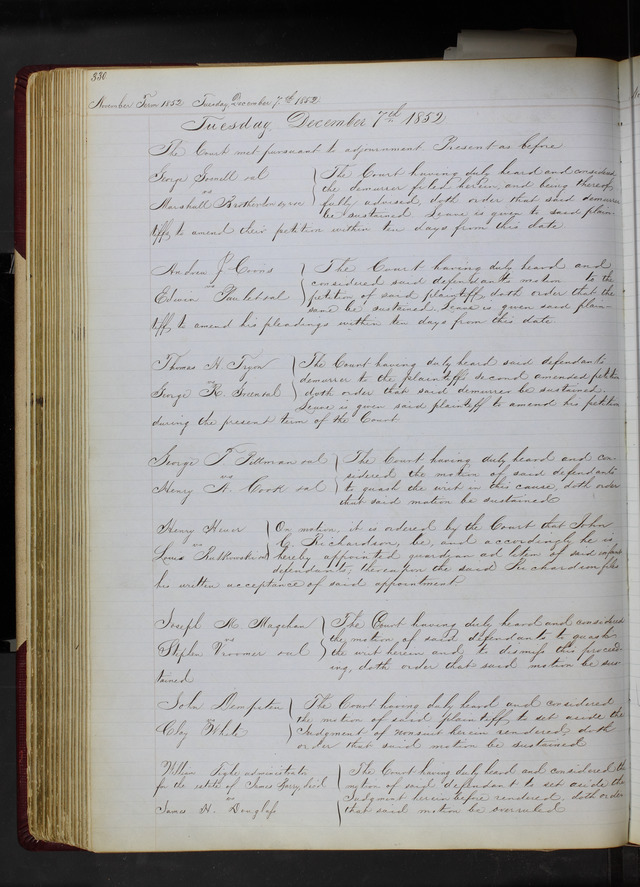 330
November Term 1852 Tuesday December 7th 1852
Tuesday December 7th 1852
The Court met pursuant to adjournment Present as before
George Sewell et al } The Court having duly heard and considered
vs the demurrer filed herein, and being thereof,
Marshall Brotherton Garr fully advised, doth order that said demurrer
be sustained Leave is given to said plain-
tiffs to amend their petition within ten days from this date
Andrew J Corns } The Court having duly heard and
vs considered said defendants motion to the
Edwin et al petition of said plaintiff, doth order that the
same be sustained. Leave is given said plain-
tiff to amend his pleadings within ten days from this date
Thomas H. Tyson } The Court having duly heard said defendants
vs demurrer to the plaintiffs second amended petition
George R. et al doth order that said demurrer be sustained
Leave is given said plaintiff to amend his petition
during the present term of the Court
George T. Pillman et al } The Court having duly heard and con-
vs sidered the motion of said defendants
Henry A. Cook et al to quash the writ in this cause, doth order
that said motion be sustained
Henry } On motion, it is ordered by the Court that John
vs G. Richardson, be, and accordingly he is
Louis hereby appointed guardian ad litem of said infant
defendants, thereupon the said Richardson files
his written acceptance of said appointment
Joseph M. Magehan } The Court having duly heard and considered
vs the motion of said defendants to quash
Stephen Vroomer et al the writ herein and to dismiss this proceed-
ing, doth order that said motion be sus-
tained
John Dempsten } The Court having duly heard and considered
the motion of said plaintiff to set aside the
Clay White Judgment of nonsuit herein rendered doth
order that said motion be sustained
William administrator } The Court having duly heard and considered the
for the estate of James decd motion of said defendant to set aside the
vs Judgment herein before rendered, doth order
James H. Douglass that said motion be overruled